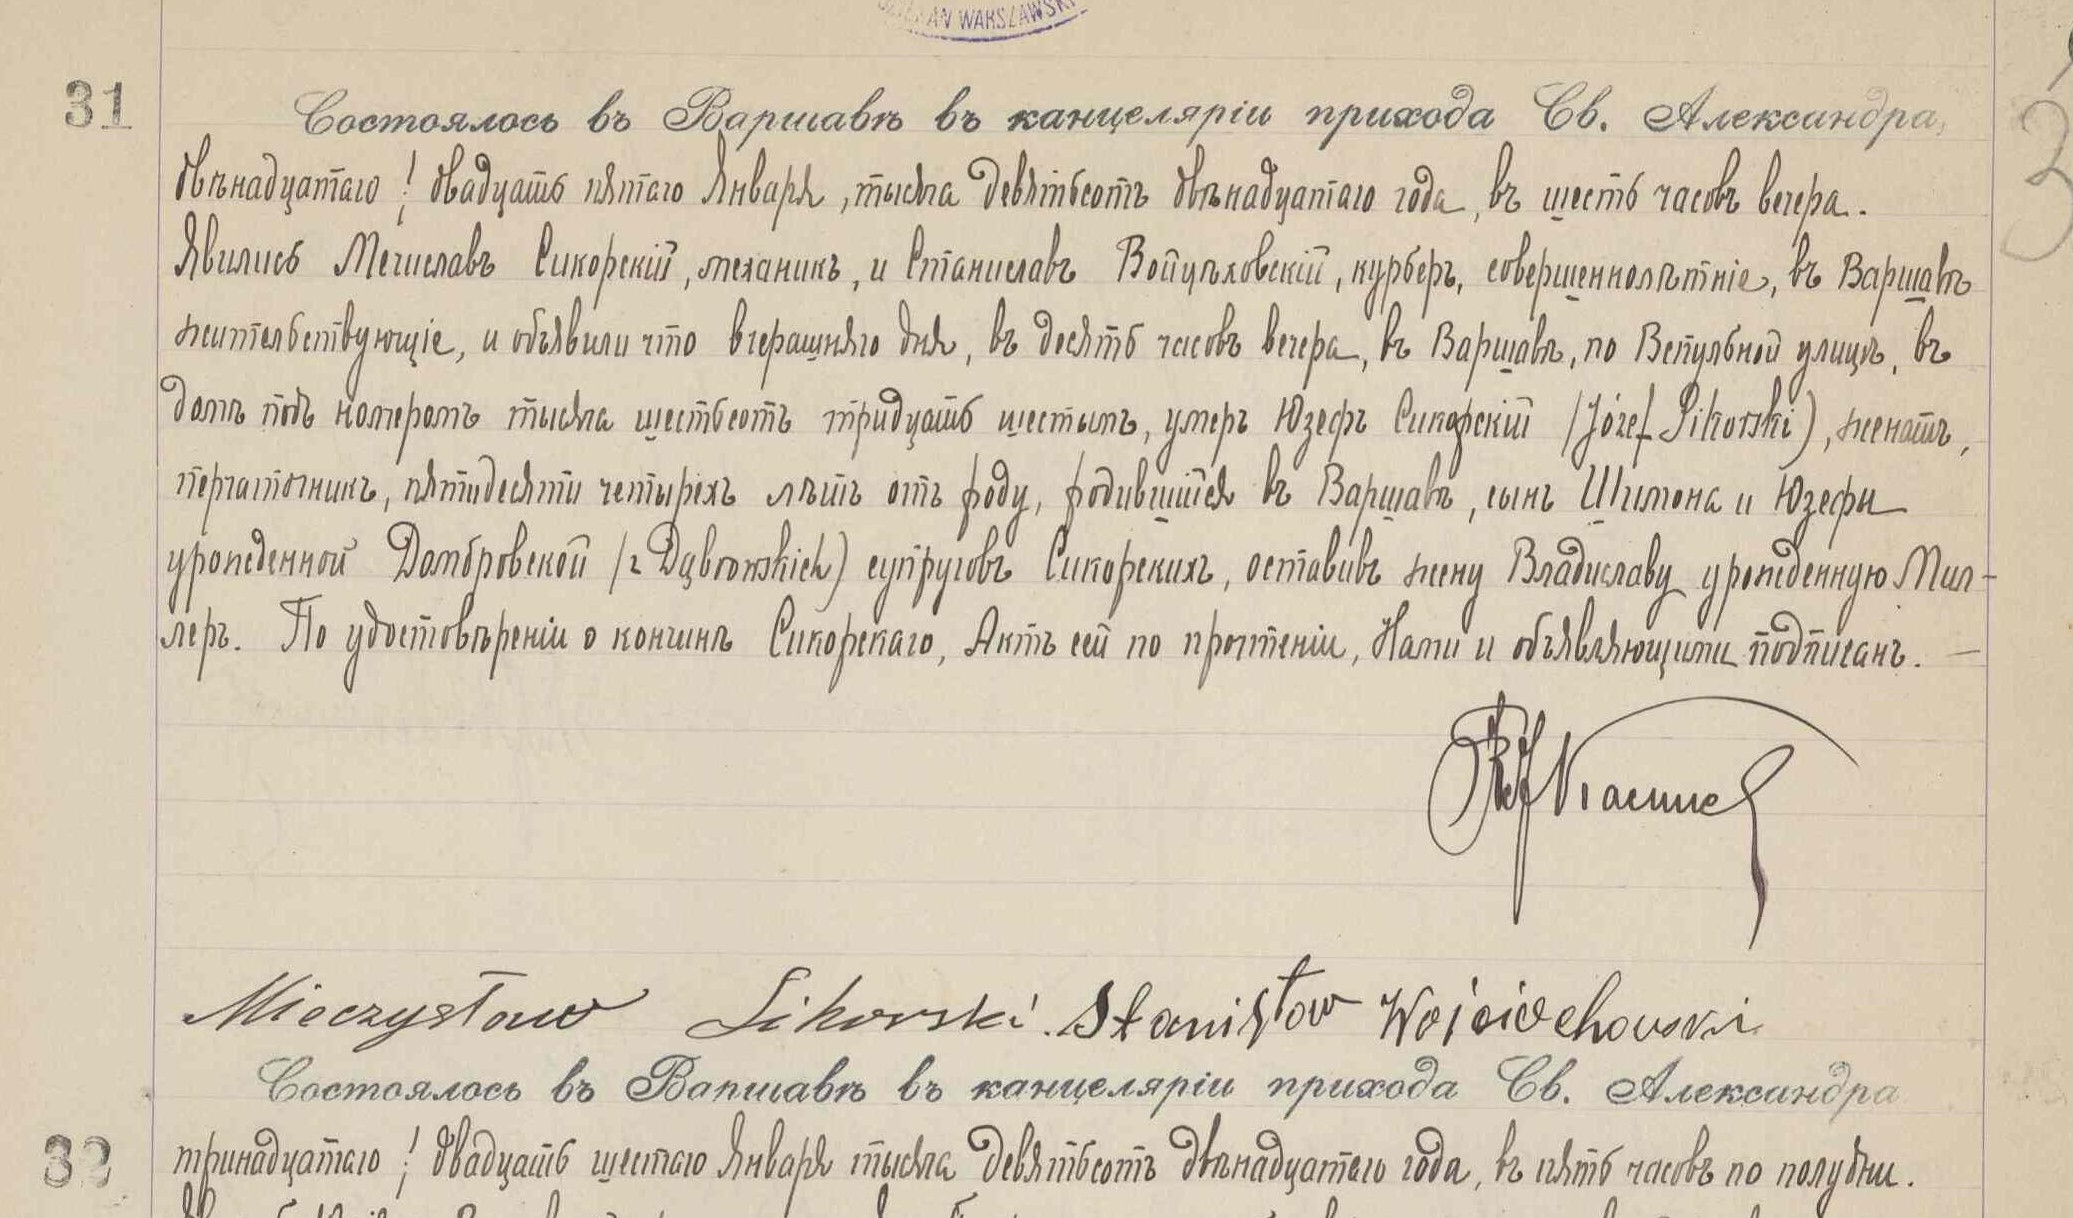 WARSZAWSKI
31
Состоялось въ Варшавѣ въ канцеляріи прихода Св. Александра,
двѣнадцатаго / двадцать пятаго Января, тысяча девятьсотъ двѣнадцатаго года, въ шесть часовъ вечера.
Явились Мечиславъ Сикорскій, механикъ, и Станиславъ Войцѣховскій, курьеръ, совершеннолѣтніе, въ Варшавѣ
жительствующіе, и объявили что вчерашняго дня, въ десять часовъ вечера, въ Варшавѣ, по Вспульной улицѣ, въ
домѣ подъ номеромъ тысяча шестьсотъ тридцать шестымъ, умеръ Юзефъ Сикорскій /Józef Sikorski), женатъ,
перчаточникъ, пятидесяти четырехъ лѣтъ отъ роду, родившійся въ Варшавѣ, сынъ Шимона и Юзефы
урожденной Домбровской /z Dąbrowskich) супруговъ Сикорскихъ, оставивъ жену Владиславу урожденную Мил-
леръ. По удостовѣреніи о кончинѣ Сикорскаго, Актъ сей по прочтеніи, Нами и объявляющими подписанъ. —
Mieczysław Sikorski. Stanisław Wojciechowski
Состоялось въ Варшавѣ въ канцеляріи прихода Св. Александра
32
тринадцатаго / двадцать шестаго Января тысяча девятьсотъ двѣнадцатаго года, въ пять часовъ по полудни.